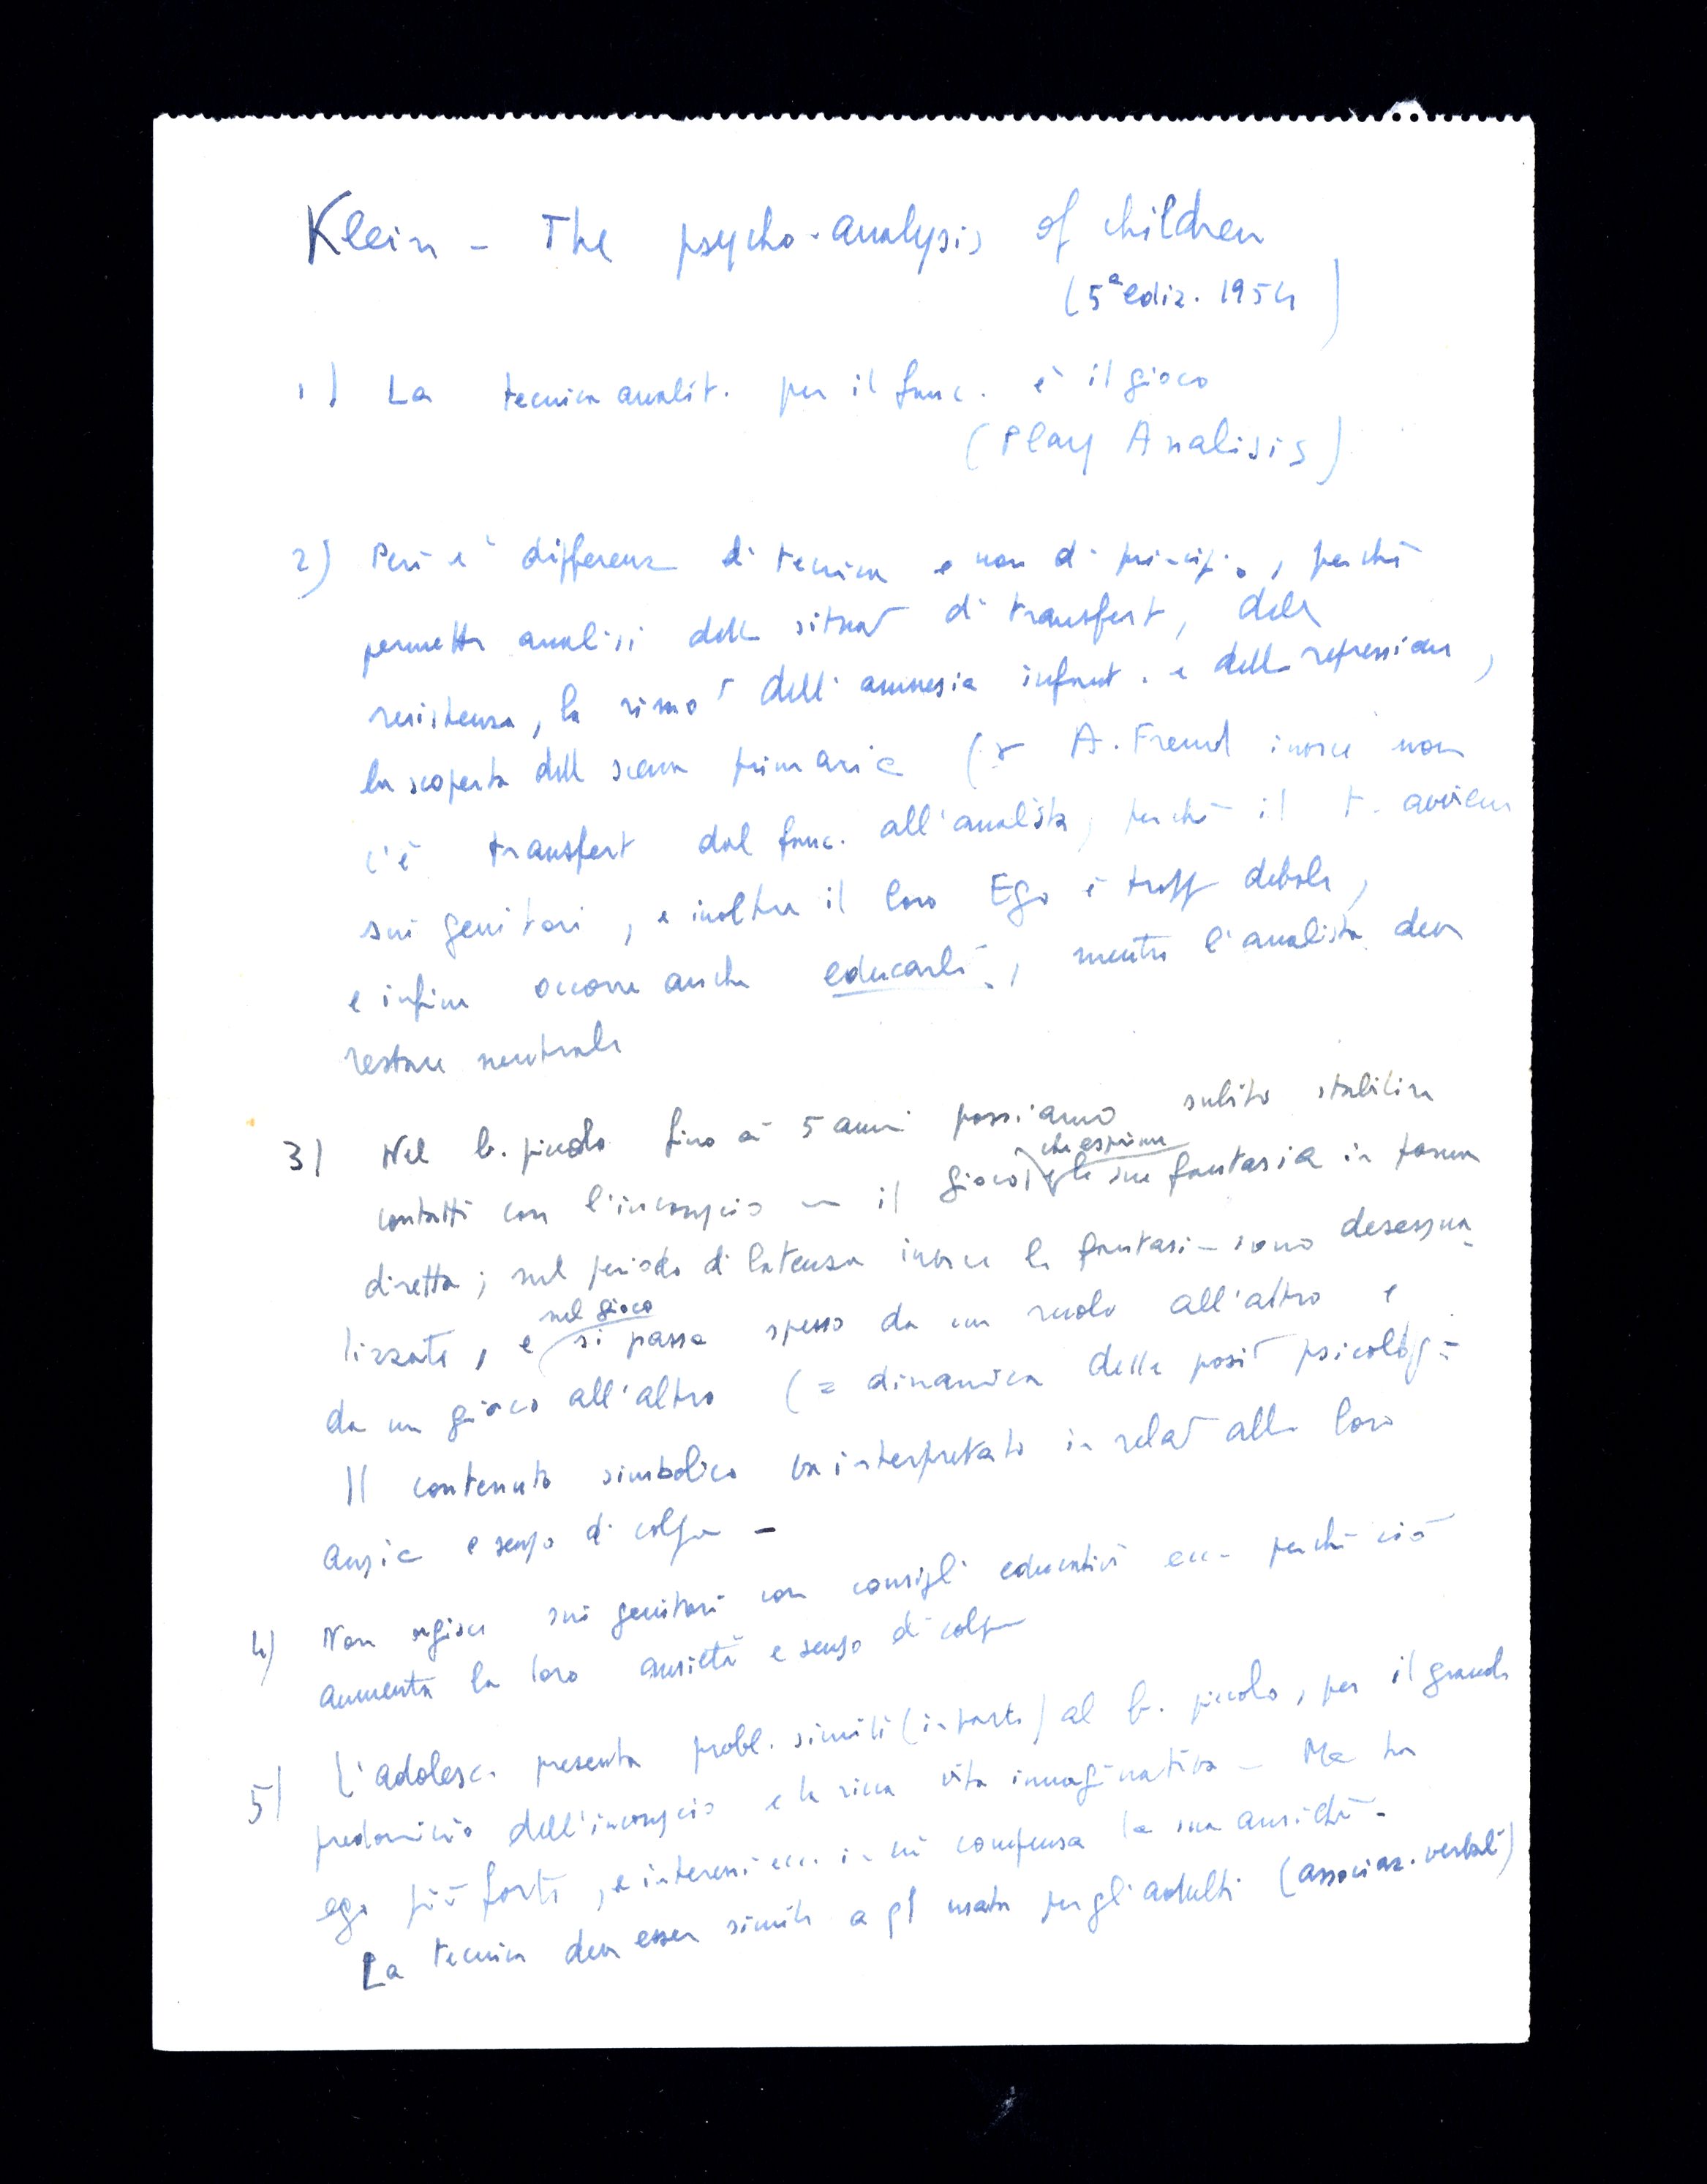 Klein - The psycho-analysis of children
(5ª ediz. 1954)
1) La tecnica analit. per il fanc. è il gioco
(Play Analisis)
2) Però è differenza di tecnica e non di principio, perchè
permette analisi della situaz di transfert, della
resistenza, la rimoz dell'amnesia infant. e della repressione,
la scoperta della scena primaria (x A. Freud invece non
c'è transfert dal fanc. all'analista, perchè il t. avviene
sui genitori, e inoltre il loro Ego è tropp debole,
e infine occorre anche educarli, mentre l'analista deve
restare neutrale
3) Nel b. piccolo fino ai 5 anni possiamo subito stabilire
contatti con l'inconscio - il gioco che esprime le sue fantasia in forma
diretta; nel periodo di latenza invece le fantasie sono desessua
lizzate, e nel gioco si passa spesso da un ruolo all'altro e
da un gioco all'altro (= dinamica delle posiz psicolog.
Il contenuto simbolico va interpretato in relaz alle loro
ansie e senso di colpa -
4) Non agisce sui genitori con consigli educativi ecc. perchè ciò
aumenta la loro ansietà e senso di colpa
5) L'adolesc. presenta probl. simili (in parte) al b. piccolo, per il grande
predominio dell'inconscio e la ricca vita immaginativa - Ma ha
ego più forte, e interessi ecc. in cui compensa la sua ansietà.
La tecnica deve esser simile a ql usata per gli adulti (associaz. verbali)